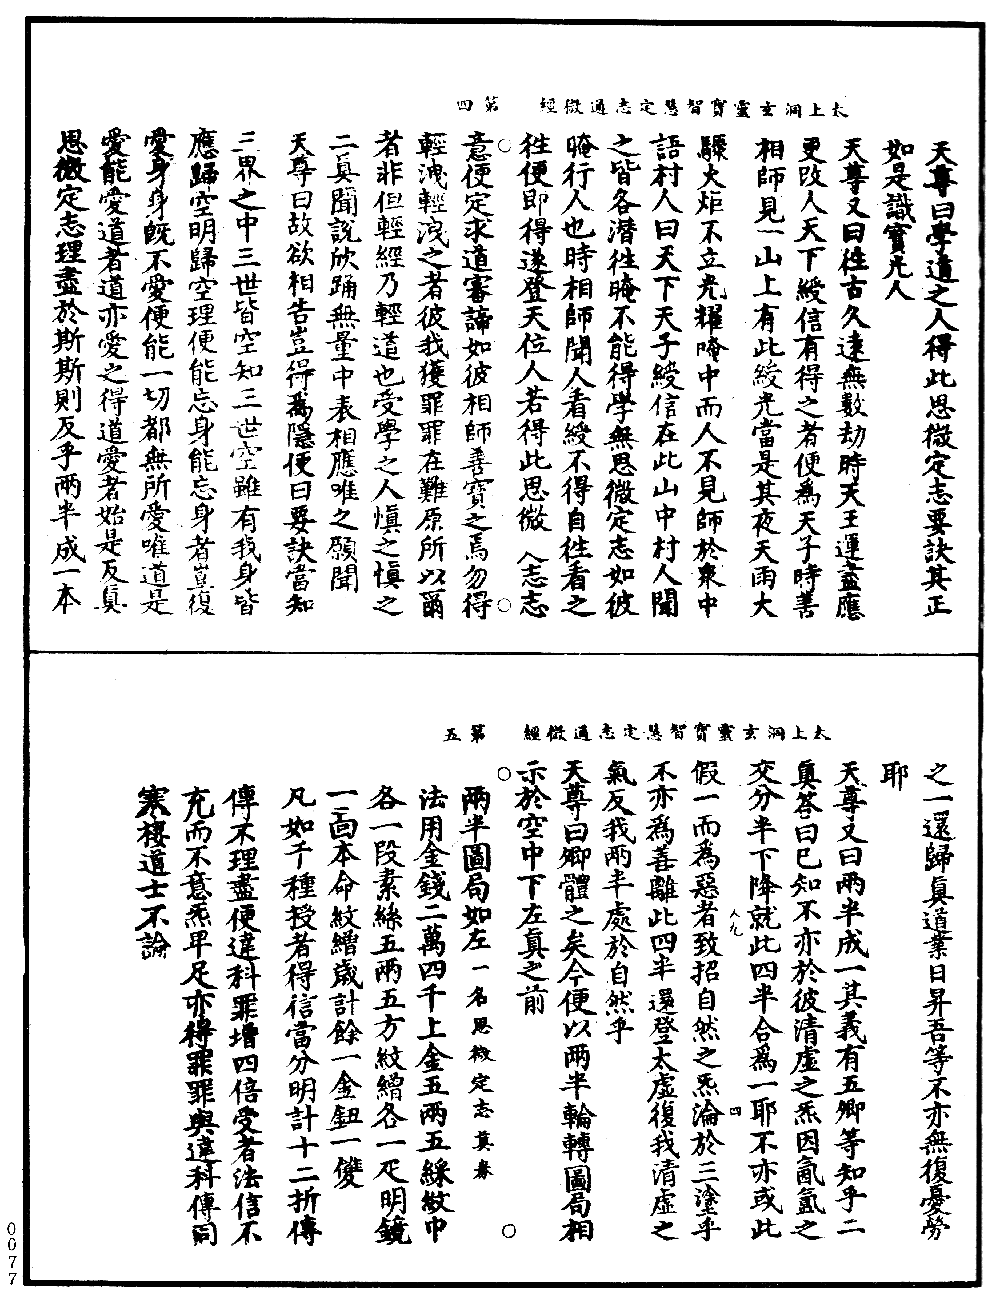 太上洞玄靈寶智慧定志通微經　第四
天尊曰學道之人得此思微定志要訣其正
如是識寶光人
天尊又曰往古久遠無數劫時天王運盡應
更改人天下綬信有得之者便為天子時善
相師見一山上有此綬光當是其夜天雨大
驟火炬不立光耀晻中而人不見師於衆中
語村人曰天下天子綬信在此山中村人聞
之皆各潛往晻不能得學無思微定志如彼
晻行人也時相師聞人看綬不得自往看之
往便即得遂登天位人若得此思微 人志志
意便定求道審諦如彼相師善寶之焉勿得
輕洩輕洩之者彼我獲罪罪在難原所以爾
者非但輕經乃輕道也受學之人慎之慎之
二真聞說欣踊無量中表相應唯之願聞
天尊曰故欲相告豈得為隱便曰要訣當知
三界之中三世皆空知三世空雖有我身皆
應歸空明歸空理便能忘身能忘身者豈復
愛身身旣不愛便能一切都無所愛唯道是
愛能愛道者道亦愛之得道愛者始是反真
思微定志理盡於斯斯則反乎兩半成一本
太上洞玄靈寶智慧定志通微經　第五
之一還歸真道業日昇吾等不亦無復憂勞
耶
天尊又曰兩半成一其義有五卿等知乎二
真答曰已知不亦於彼清虛之炁因氤氳之
交分半下降就此四半合為一耶不亦或此
假一而為惡者致招自然之炁淪於三塗乎
不亦為善離此四半還登太虛復我清虛之
氣反我兩半處於自然乎
天尊曰卿體之矣今便以兩半輪轉圖局相
示於空中下左真之前
兩半圖局如左一名思微定志真券
法用金錢二萬四千上金五兩五綵紋巾
各一段素絲五兩五方紋繒各一疋明鏡
一面本命紋繒歲計餘一金鈕一雙
凡如千種授者得信當分明計十二折傳
傳不理盡便違科罪增四倍受者法信不
充而不意炁早足亦得罪罪與違科傳同
寒棲道士不論
0077